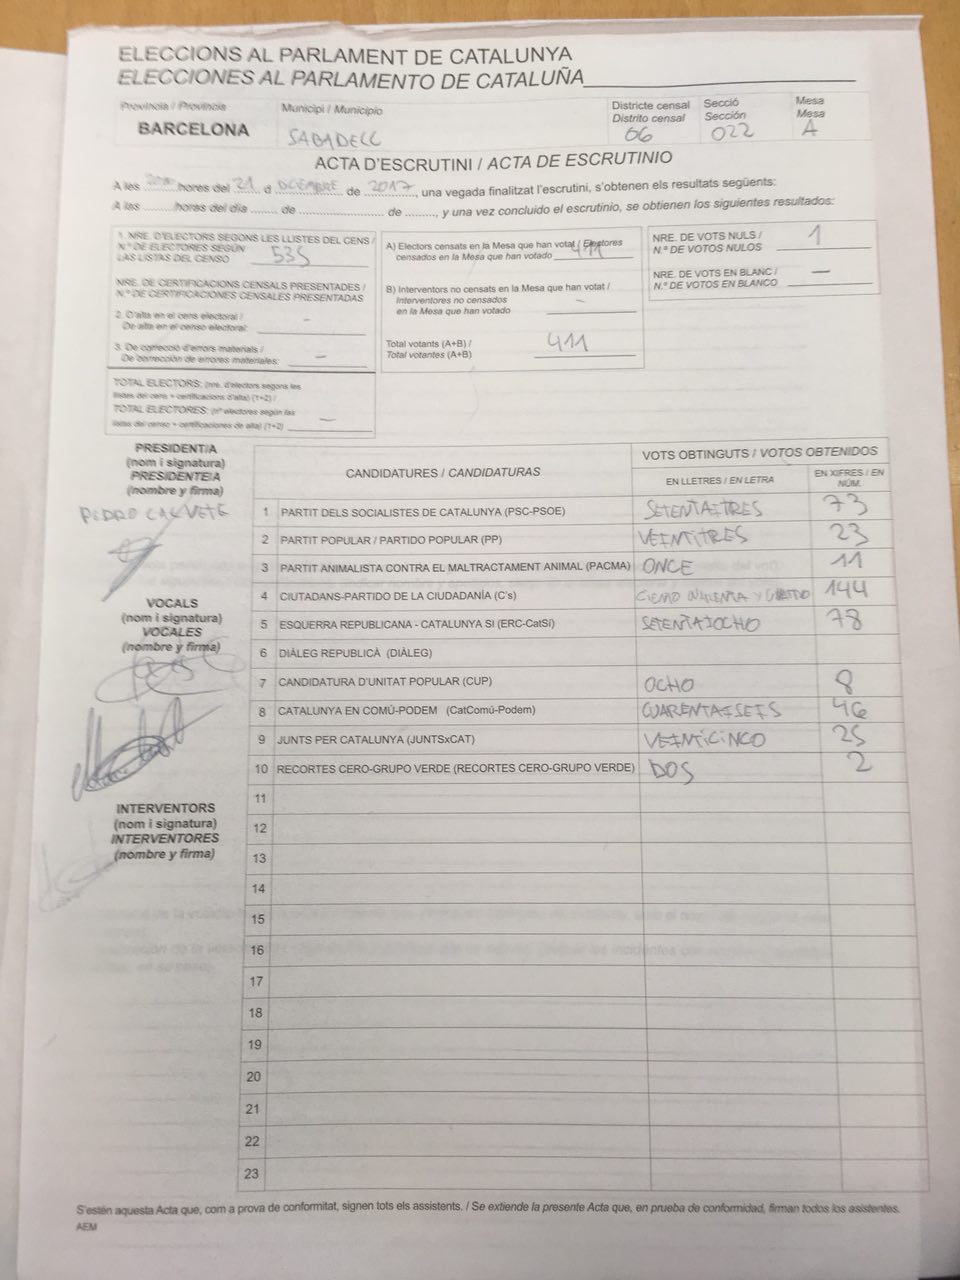 ELECCIONS AL PARLAMENT DE CATALUNYA
ELECCIONES AL PARLAMENTO DE CATALUÑA
Província / Provincia
Municipi / Municipio
Districte censal
Distrito censal
Secció
Sección
Mesa
Mesa
BARCELONA
SABADELL
06
022
A
ACTA D'ESCRUTINI / ACTA DE ESCRUTINIO
A les ......... hores del 21 d DICIEMBRE de 2017, una vegada finalitzat l'escrutini, s'obtenen els resultats següents:
A las .........horas del día ........ de ........................ de ........, y una vez concluido el escrutinio, se obtienen los siguientes resultados:
1. NRE. D'ELECTORS SEGONS LES LLISTES DEL CENS /
N.º DE ELECTORES SEGÚN
LAS LISTAS DEL CENSO 535
NRE. DE CERTIFICACIONS CENSALS PRESENTADES /
N.º DE CERTIFICACIONES CENSALES PRESENTADAS
2. D'alta en el cens electoral /
De alta en el censo electoral: –
3. De correcció d'errors materials /
De corrección de errores materiales: –
TOTAL ELECTORS: (nre. d'electors segons les
llistes del cens + certificacions d'alta) (1+2) /
TOTAL ELECTORES: (nº electores según las
listas del censo + certificaciones de alta) (1+2) –
A) Electors censats en la Mesa que han votat / Electores
censados en la Mesa que han votado 411
B) Interventors no censats en la Mesa que han votat /
Interventores no censados
en la Mesa que han votado –
Total votants (A+B) /
Total votantes (A+B) 411
NRE. DE VOTS NULS /
N.º DE VOTOS NULOS 1
NRE. DE VOTS EN BLANC /
N.º DE VOTOS EN BLANCO —
PRESIDENT/A
(nom i signatura)
PRESIDENTE/A
(nombre y firma)
PEDRO CALVETE
VOCALS
(nom i signatura)
VOCALES
(nombre y firma)
INTERVENTORS
(nom i signatura)
INTERVENTORES
(nombre y firma)
CANDIDATURES / CANDIDATURAS
VOTS OBTINGUTS / VOTOS OBTENIDOS
EN LLETRES / EN LETRA
EN XIFRES / EN
NÚM.
1 PARTIT DELS SOCIALISTES DE CATALUNYA (PSC-PSOE) SETENTAITRES 73
2 PARTIT POPULAR / PARTIDO POPULAR (PP) VEINTITRES 23
3 PARTIT ANIMALISTA CONTRA EL MALTRACTAMENT ANIMAL (PACMA) ONCE 11
4 CIUTADANS-PARTIDO DE LA CIUDADANÍA (C's) CIENTO CUARENTA Y CUATRO 144
5 ESQUERRA REPUBLICANA - CATALUNYA SÍ (ERC-CatSí) SETENTAIOCHO 78
6 DIÀLEG REPUBLICÀ (DIÀLEG)
7 CANDIDATURA D'UNITAT POPULAR (CUP) OCHO 8
8 CATALUNYA EN COMÚ-PODEM (CatComú-Podem) CUARENTAISEIS 46
9 JUNTS PER CATALUNYA (JUNTSxCAT) VEINTICINCO 25
10 RECORTES CERO-GRUPO VERDE (RECORTES CERO-GRUPO VERDE) DOS 2
11
12
13
14
15
16
17
18
19
20
21
22
23
S'estén aquesta Acta que, com a prova de conformitat, signen tots els assistents. / Se extiende la presente Acta que, en prueba de conformidad, firman todos los asistentes.
AEM